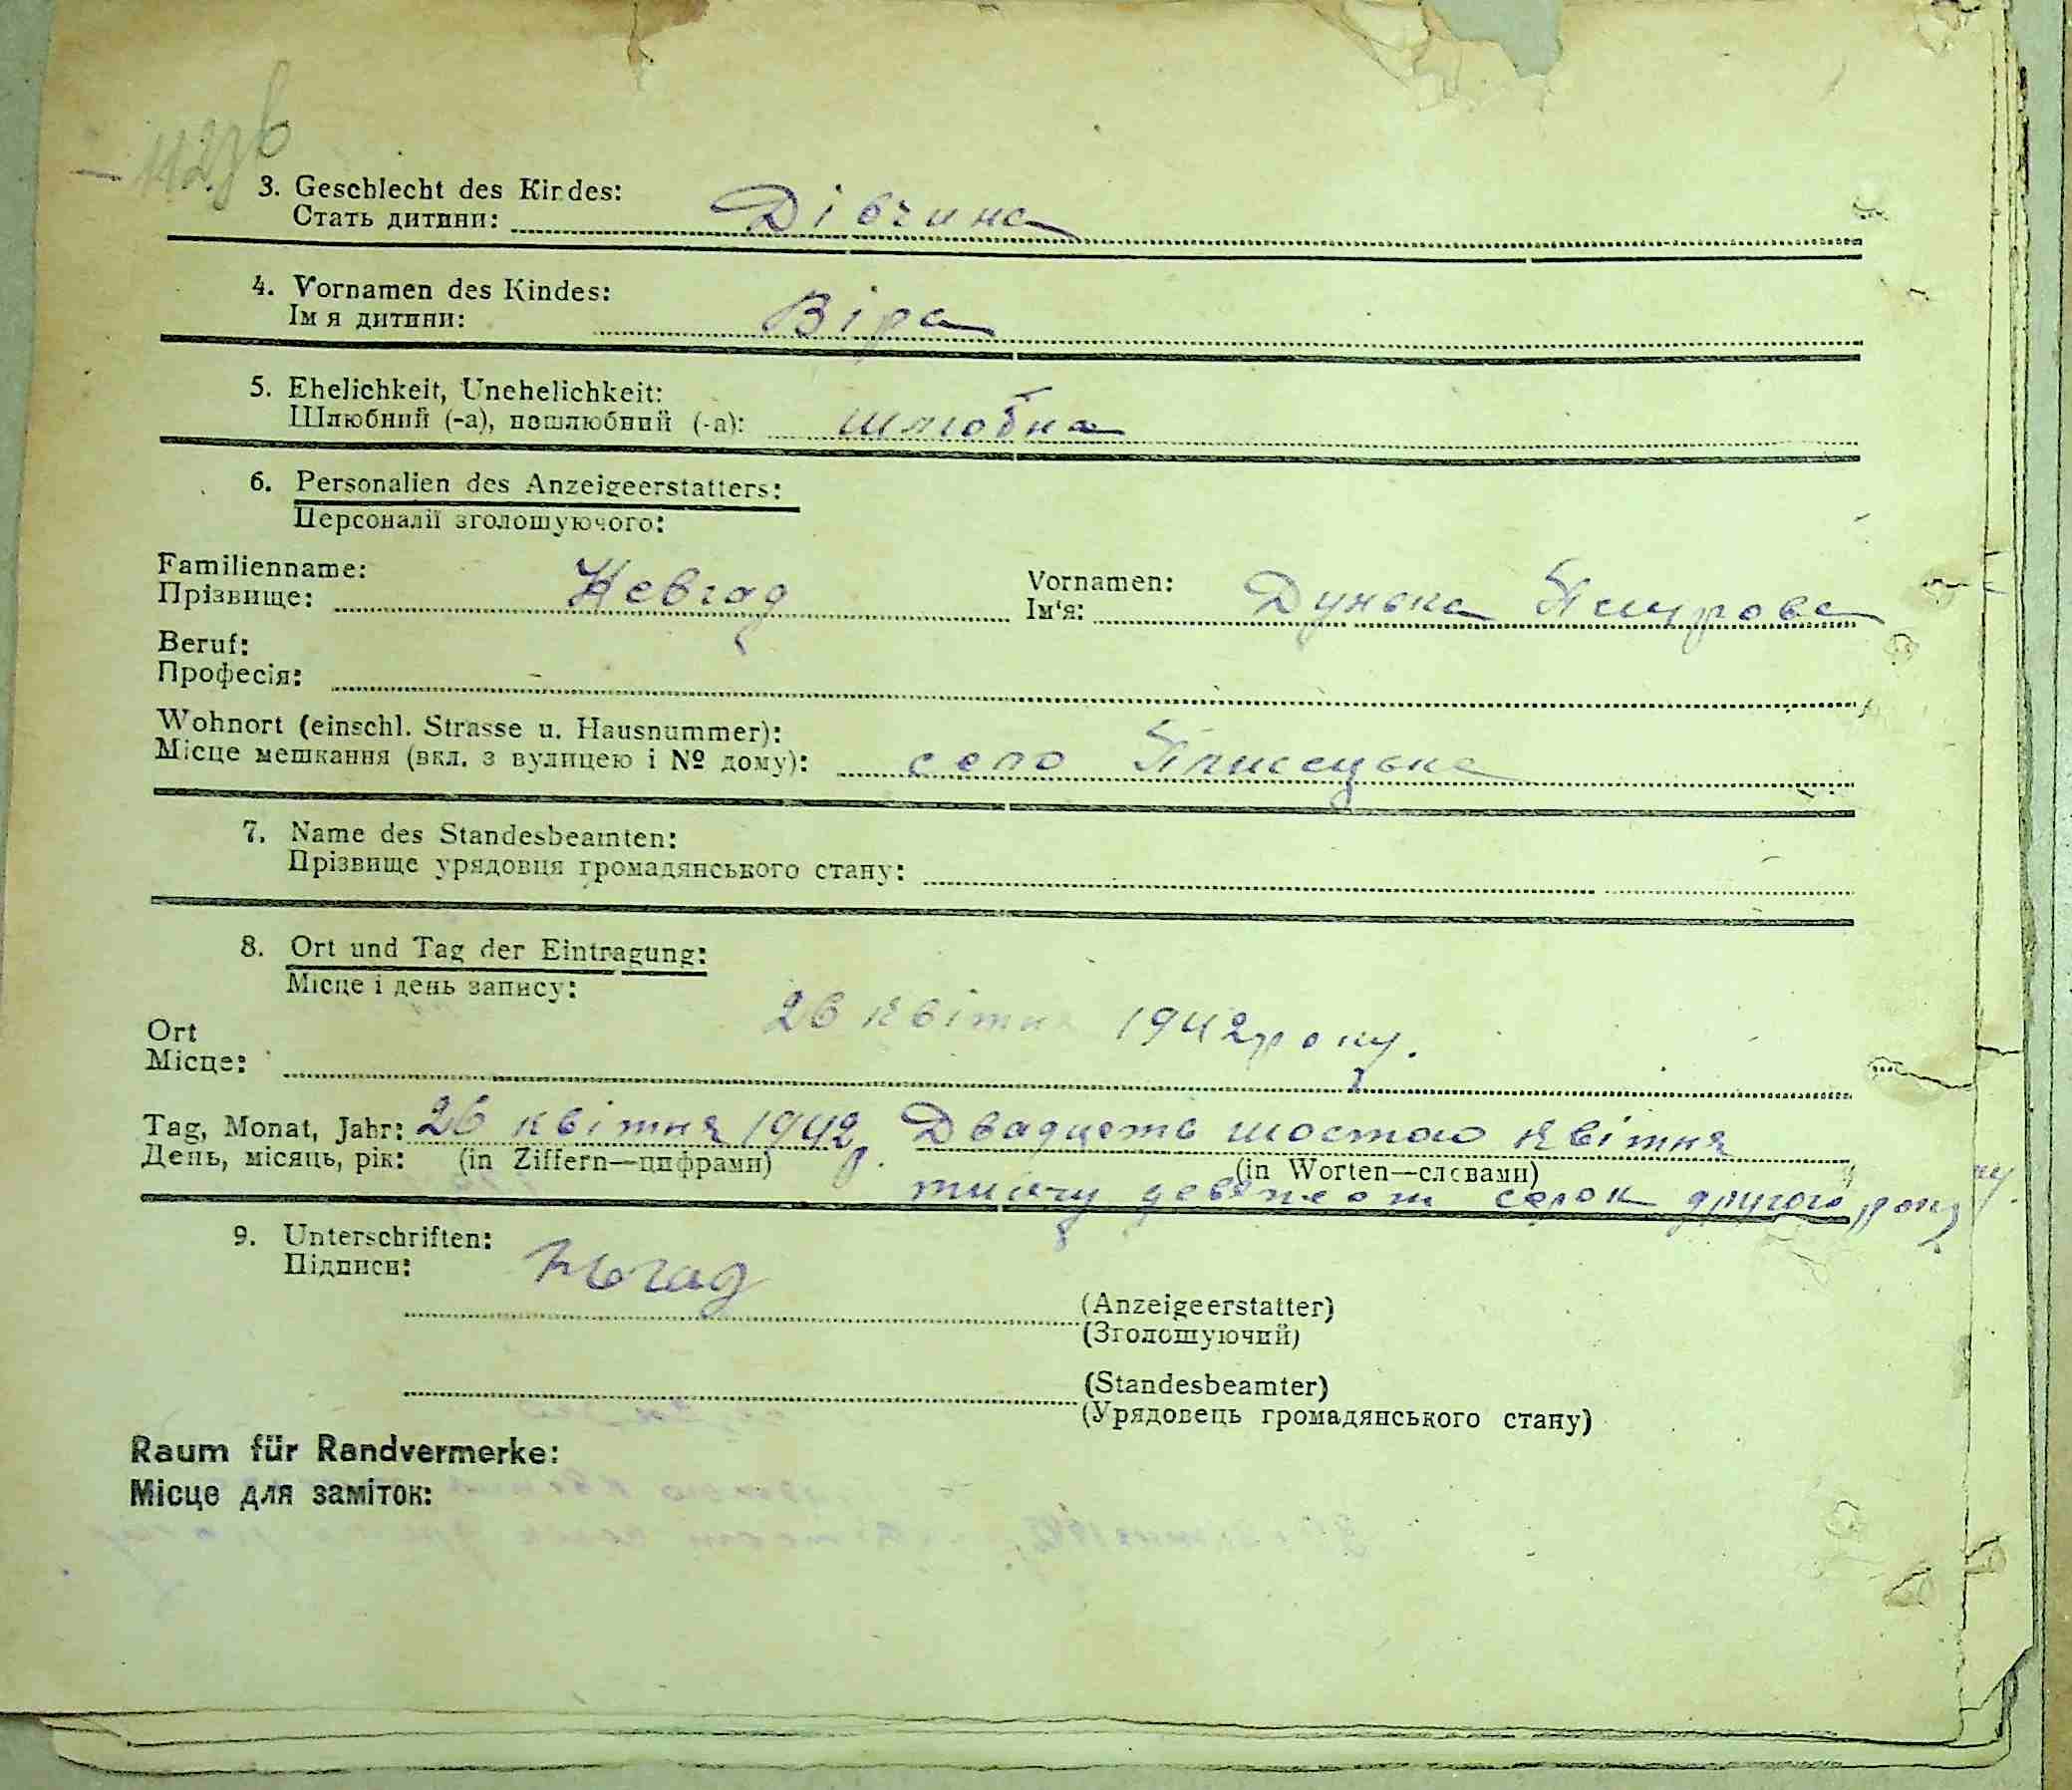 3. Geschlecht des Kindes:
Стать дитини: Дівчина
4. Vornamen des Kindes:
Імя дитини: Віра
5. Ehelichkeit, Unehelichkeit:
Шлюбний (-а), нешлюбний (-а): шлюбна
6. Personalien des Anzeigeerstatters:
Персоналії зголошуючого:
Familienname: Vornamen:
Прізвище: Ім'я: Дунька
Beruf:
Професія:
Wohnort (einschl. Strasse u. Hausnummer):
Місце мешкання (вкл. з вулицею і № дому): село Плисецьке
7. Name des Standesbeamten:
Прізвище урядовця громадянського стану:
8. Ort und Tag der Eintragung:
Місце і день запису:
26 квітня 1942 року.
Ort
Місце:
Tag, Monat, Jahr: 26 квітня 1942 р. Двадцять шостого квітня
День, місяць, рік: (in Ziffern—цифрами) (in Worten—словами)
тисячу девятсот сорок другого року
9. Unterschriften:
Підписи:
(Anzeigeerstatter)
(Зголошуючий)
(Standesbeamter)
(Урядовець громадянського стану)
Raum für Randvermerke:
Місце для заміток: